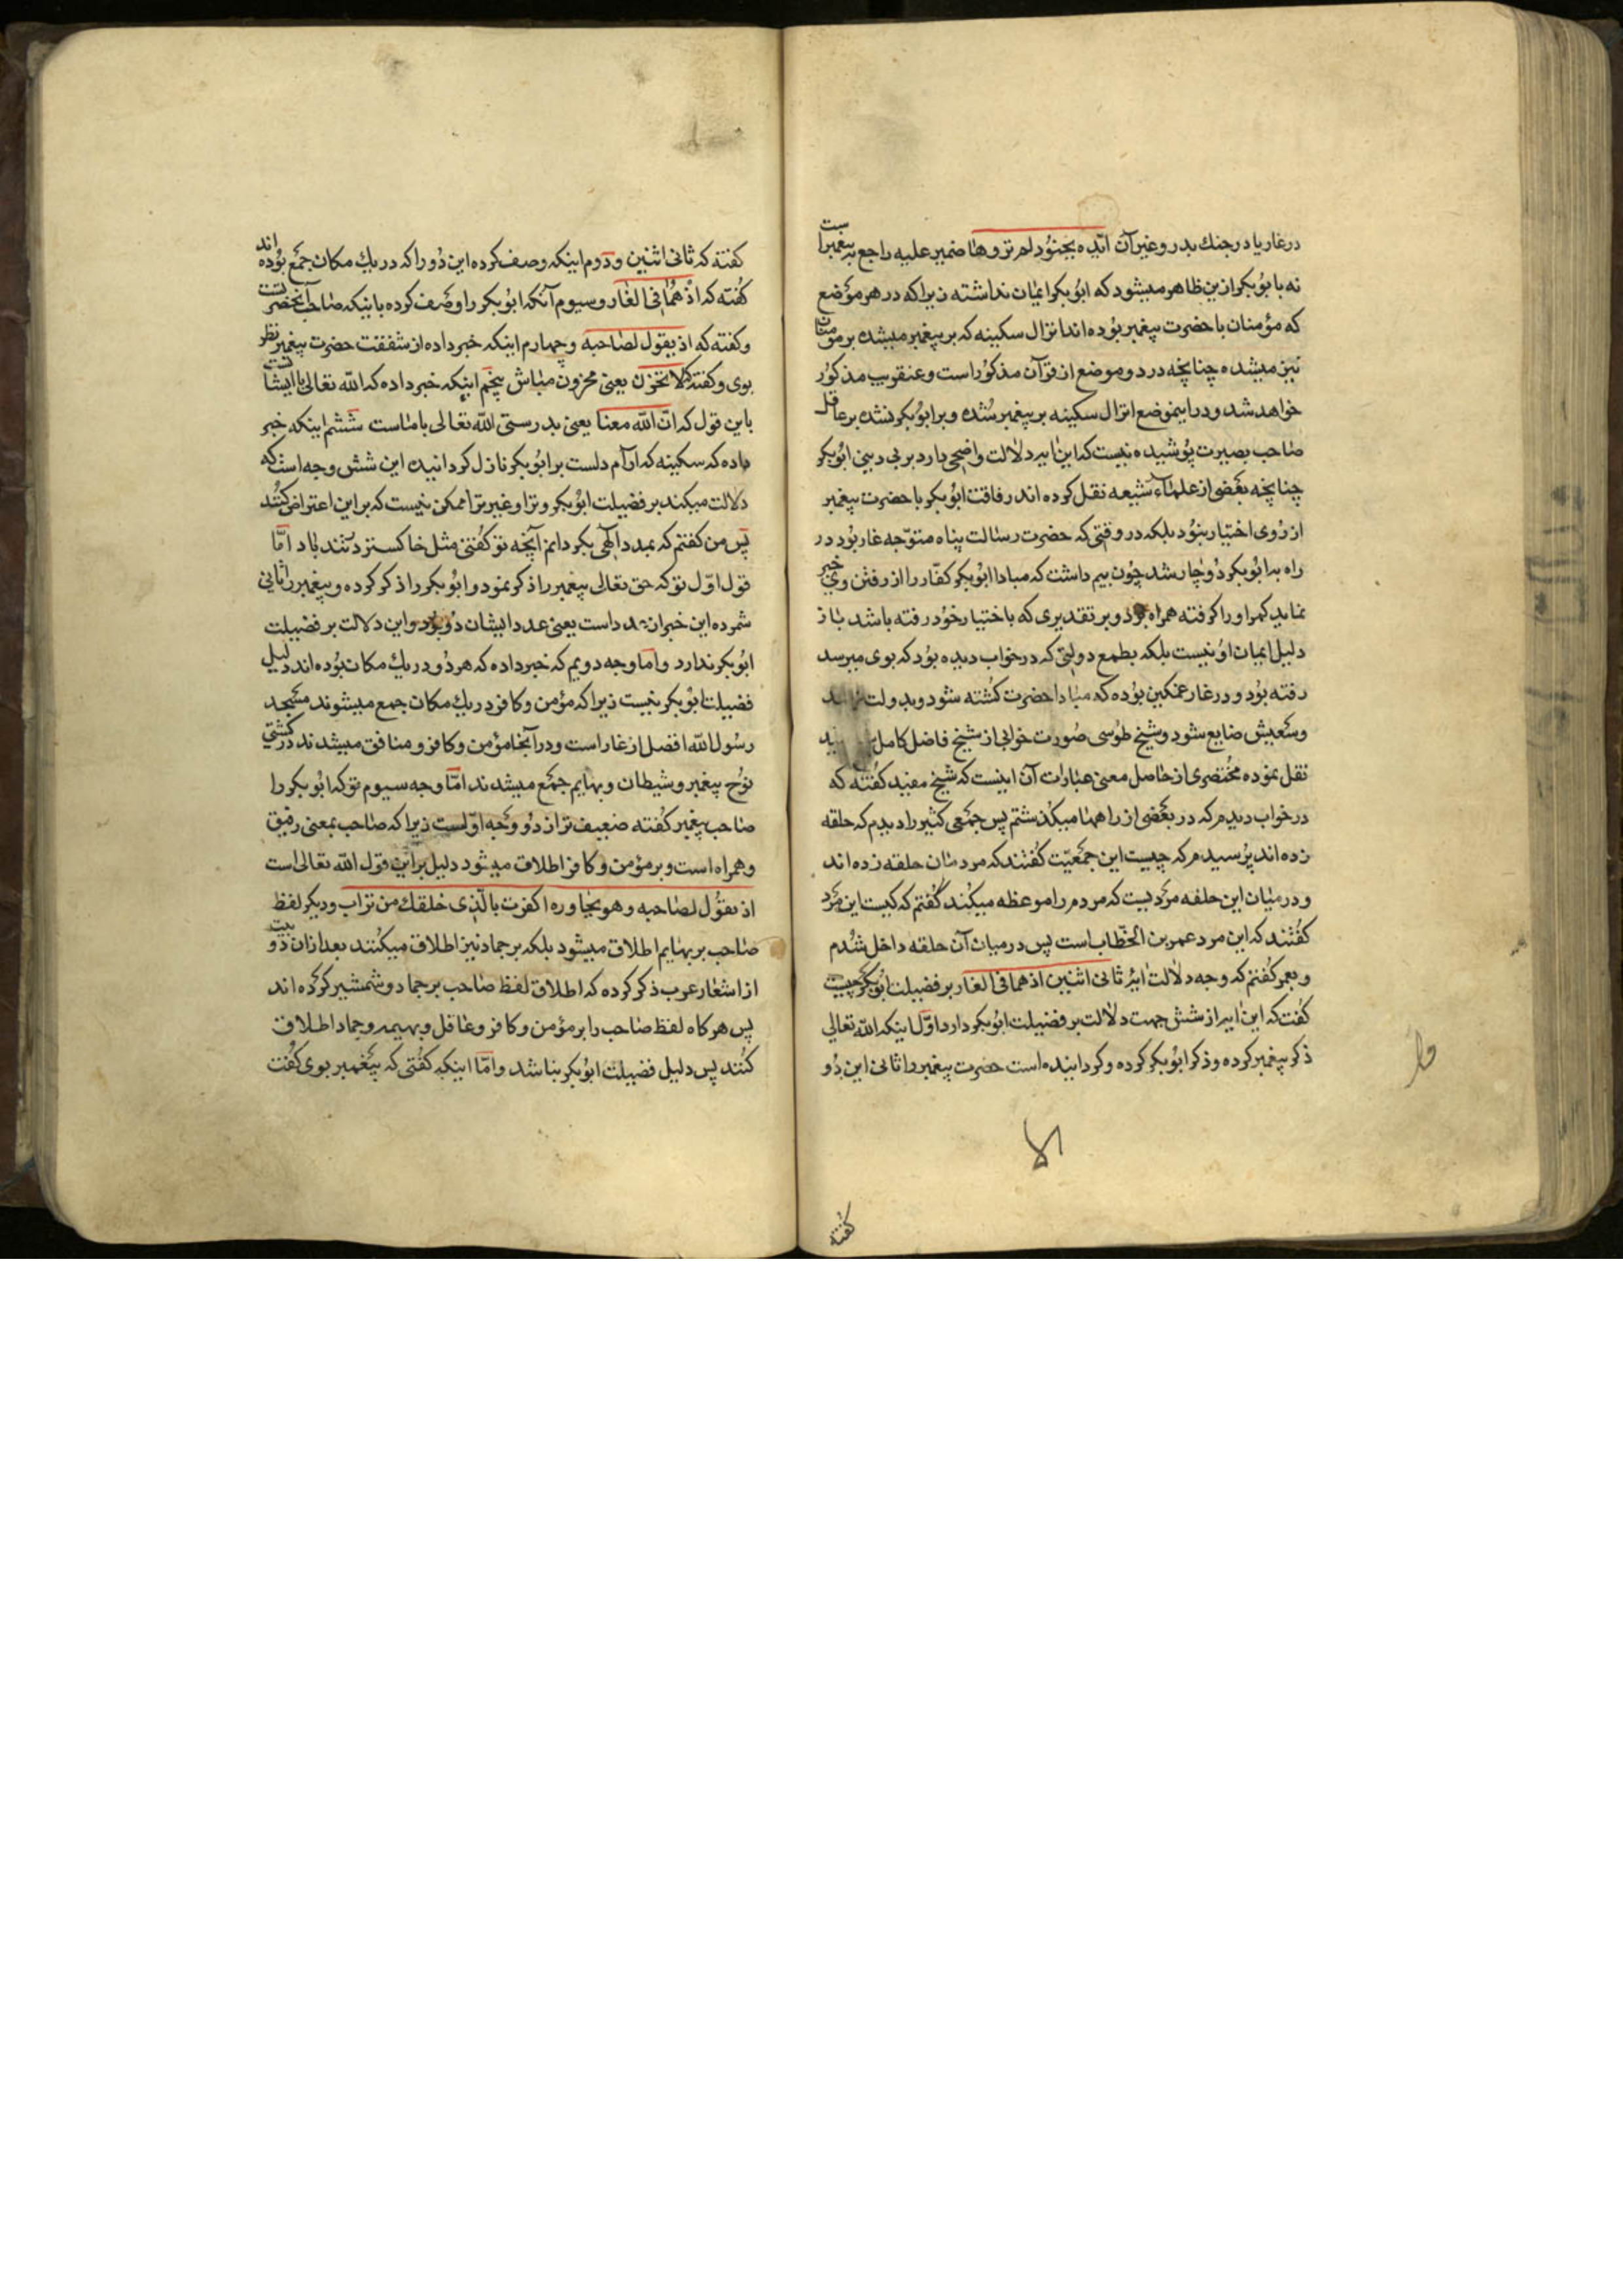 در غار یا در جنك بدر و غیر آن ایّده بجنود لم تروها ضمیر علیه راجع به پیغمبر است
نه بابوبکر ازین ظاهر میشود که ابوبکر ایمان نداشته زیرا که در هر موضع
که مؤمنان با حضرت پیغمبر بوده اند انزال سکینه که بر پیغمبر میشده بر مومنان
نیز میشده چنانچه در دو موضع از قرآن مذکور است و عنقریب مذکور
خواهد شد و در اینموضع انزال سکینه بر پیغمبر شده و بر ابوبکر نشده بر عاقل
صاحب بصیرت پوشیده نیست که این ایه دلالت واضحی دارد بر بی دینی ابوبکر
چنانچه بعضی از علماء شیعه نقل کرده اند رفاقت ابوبکر با حضرت پیغمبر
از روی اختیار نبود بلکه در وقتی که حضرت رسالت پناه متوّجه غار بود در
راه به ابوبکر دوچار شد چون بیم داشت که مبادا ابوبکر کفّار را از رفتن وی خبر
نماید کمر او را کرفته همراه برد و بر تقدیری که باختیار خود رفته باشد باز
دلیل ایمان او نیست بلکه بطمع دولتی که در خواب دیده بود که بوی میرسد
رفته بود و در غار غمکین بوده که مبادا حضرت کشته شود و بدولت
و سعیش ضایع شود و شیخ طوسی صورت خوابی از شیخ فاضل کامل
نقل نموده مختصری از حاصل معنی عبارات آن اینست که شیخ مفید کفته که
در خواب دیدم که در بعضی از راهها میکذشتم پس جمعی کثیر را دیدم که حلقه
زده اند پرسیدم که چیست این جمعیّت کفتند که مردمان حلقه زده اند
و در میان این حلقه مردیست که مردم را موعظه میکند کفتم که کیست این مرد
کفتند که این مرد عمر بن الخطّاب است پس در میان آن حلقه داخل شدم
و بعمر کفتم که وجه دلالت ایهٔ ثانی اثنین اذ هما فی الغار بر فضیلت ابوبکر چیست
کفت که این ایه از شش جهت دلالت بر فضیلت ابوبکر دارد اوّل اینکه الله تعالی
ذکر پیغمبر کرده و ذکر ابوبکر کرده و کردانیده است حضرت پیغمبر را ثانی این دو
کفته
کفته که ثانی اثنین و دوم اینکه وصف کرده این دو را که در یك مکان جمع بوده اند
کفته که اذ هما فی الغار و سیوم آنکه ابوبکر را وصف کرده باینکه صاحب آنحضرتست
و کفته که اذ یقول لصاحبه و چهارم اینکه خبر داده از شفقت حضرت پیغمبر نظر
بوی و کفته که لا تحزن یعنی محزون مباش پنجم اینکه خبر داده که الله تعالی با ایشانست
باین قول که انّ الله معنا یعنی بدرستی الله تعالی با ماست ششم اینکه خبر
داده که سکینه که آرام دلست بر ابوبکر نازل کردانیده این شش وجه است که
دلالت میکند بر فضیلت ابوبکر و ترا و غیر ترا ممکن نیست که بر این اعتراض کنند
پس من کفتم که بمدد الهی بکردانم آنچه تو کفتی مثل خاکستر در تند باد امّا
قول اوّل تو که حق تعالی پیغمبر را ذکر نمود و ابوبکر را ذکر کرده و پیغمبر را ثانی
شمرده این خبر از عدد است یعنی عدد ایشان دو بود و این دلالت بر فضیلت
ابوبکر ندارد و امّا وجه دویم که خبر داده که هر دو در یك مکان بوده اند دلیل
فضیلت ابوبکر نیست زیرا که مؤمن و کافر در یك مکان جمع میشوند مسجد
رسول الله افضل از غار است و در آنجا مؤمن و کافر و منافق میشدند در کشتی
نوح پیغمبر و شیطان و بهایم جمع میشدند امّا وجه سیوم تو که ابوبکر را
صاحب پیغمبر کفته ضعیف تر از دو وجه اوّلست زیرا که صاحب بمعنی رفیق
و همراه است و بر مؤمن و کافر اطلاق میشود دلیل بر این قول الله تعالی است
اذ یقول لصاحبه و هو یحاوره اکفرت بالّذی خلقك من تراب و دیکر لفظ
صاحب بر بهایم اطلاق میشود بلکه بر جماد نیز اطلاق میکنند بعد از ان دو بیت
از اشعار عرب ذکر کرده که اطلاق لفظ صاحب بر جماد و شمشیر کرده اند
پس هر کاه لفظ صاحب را بر مؤمن و کافر و عاقل و بهیمه و جماد اطلاق
کنند پس دلیل فضیلت ابوبکر نباشد و امّا اینکه کفتی که پیغمبر بوی کفت